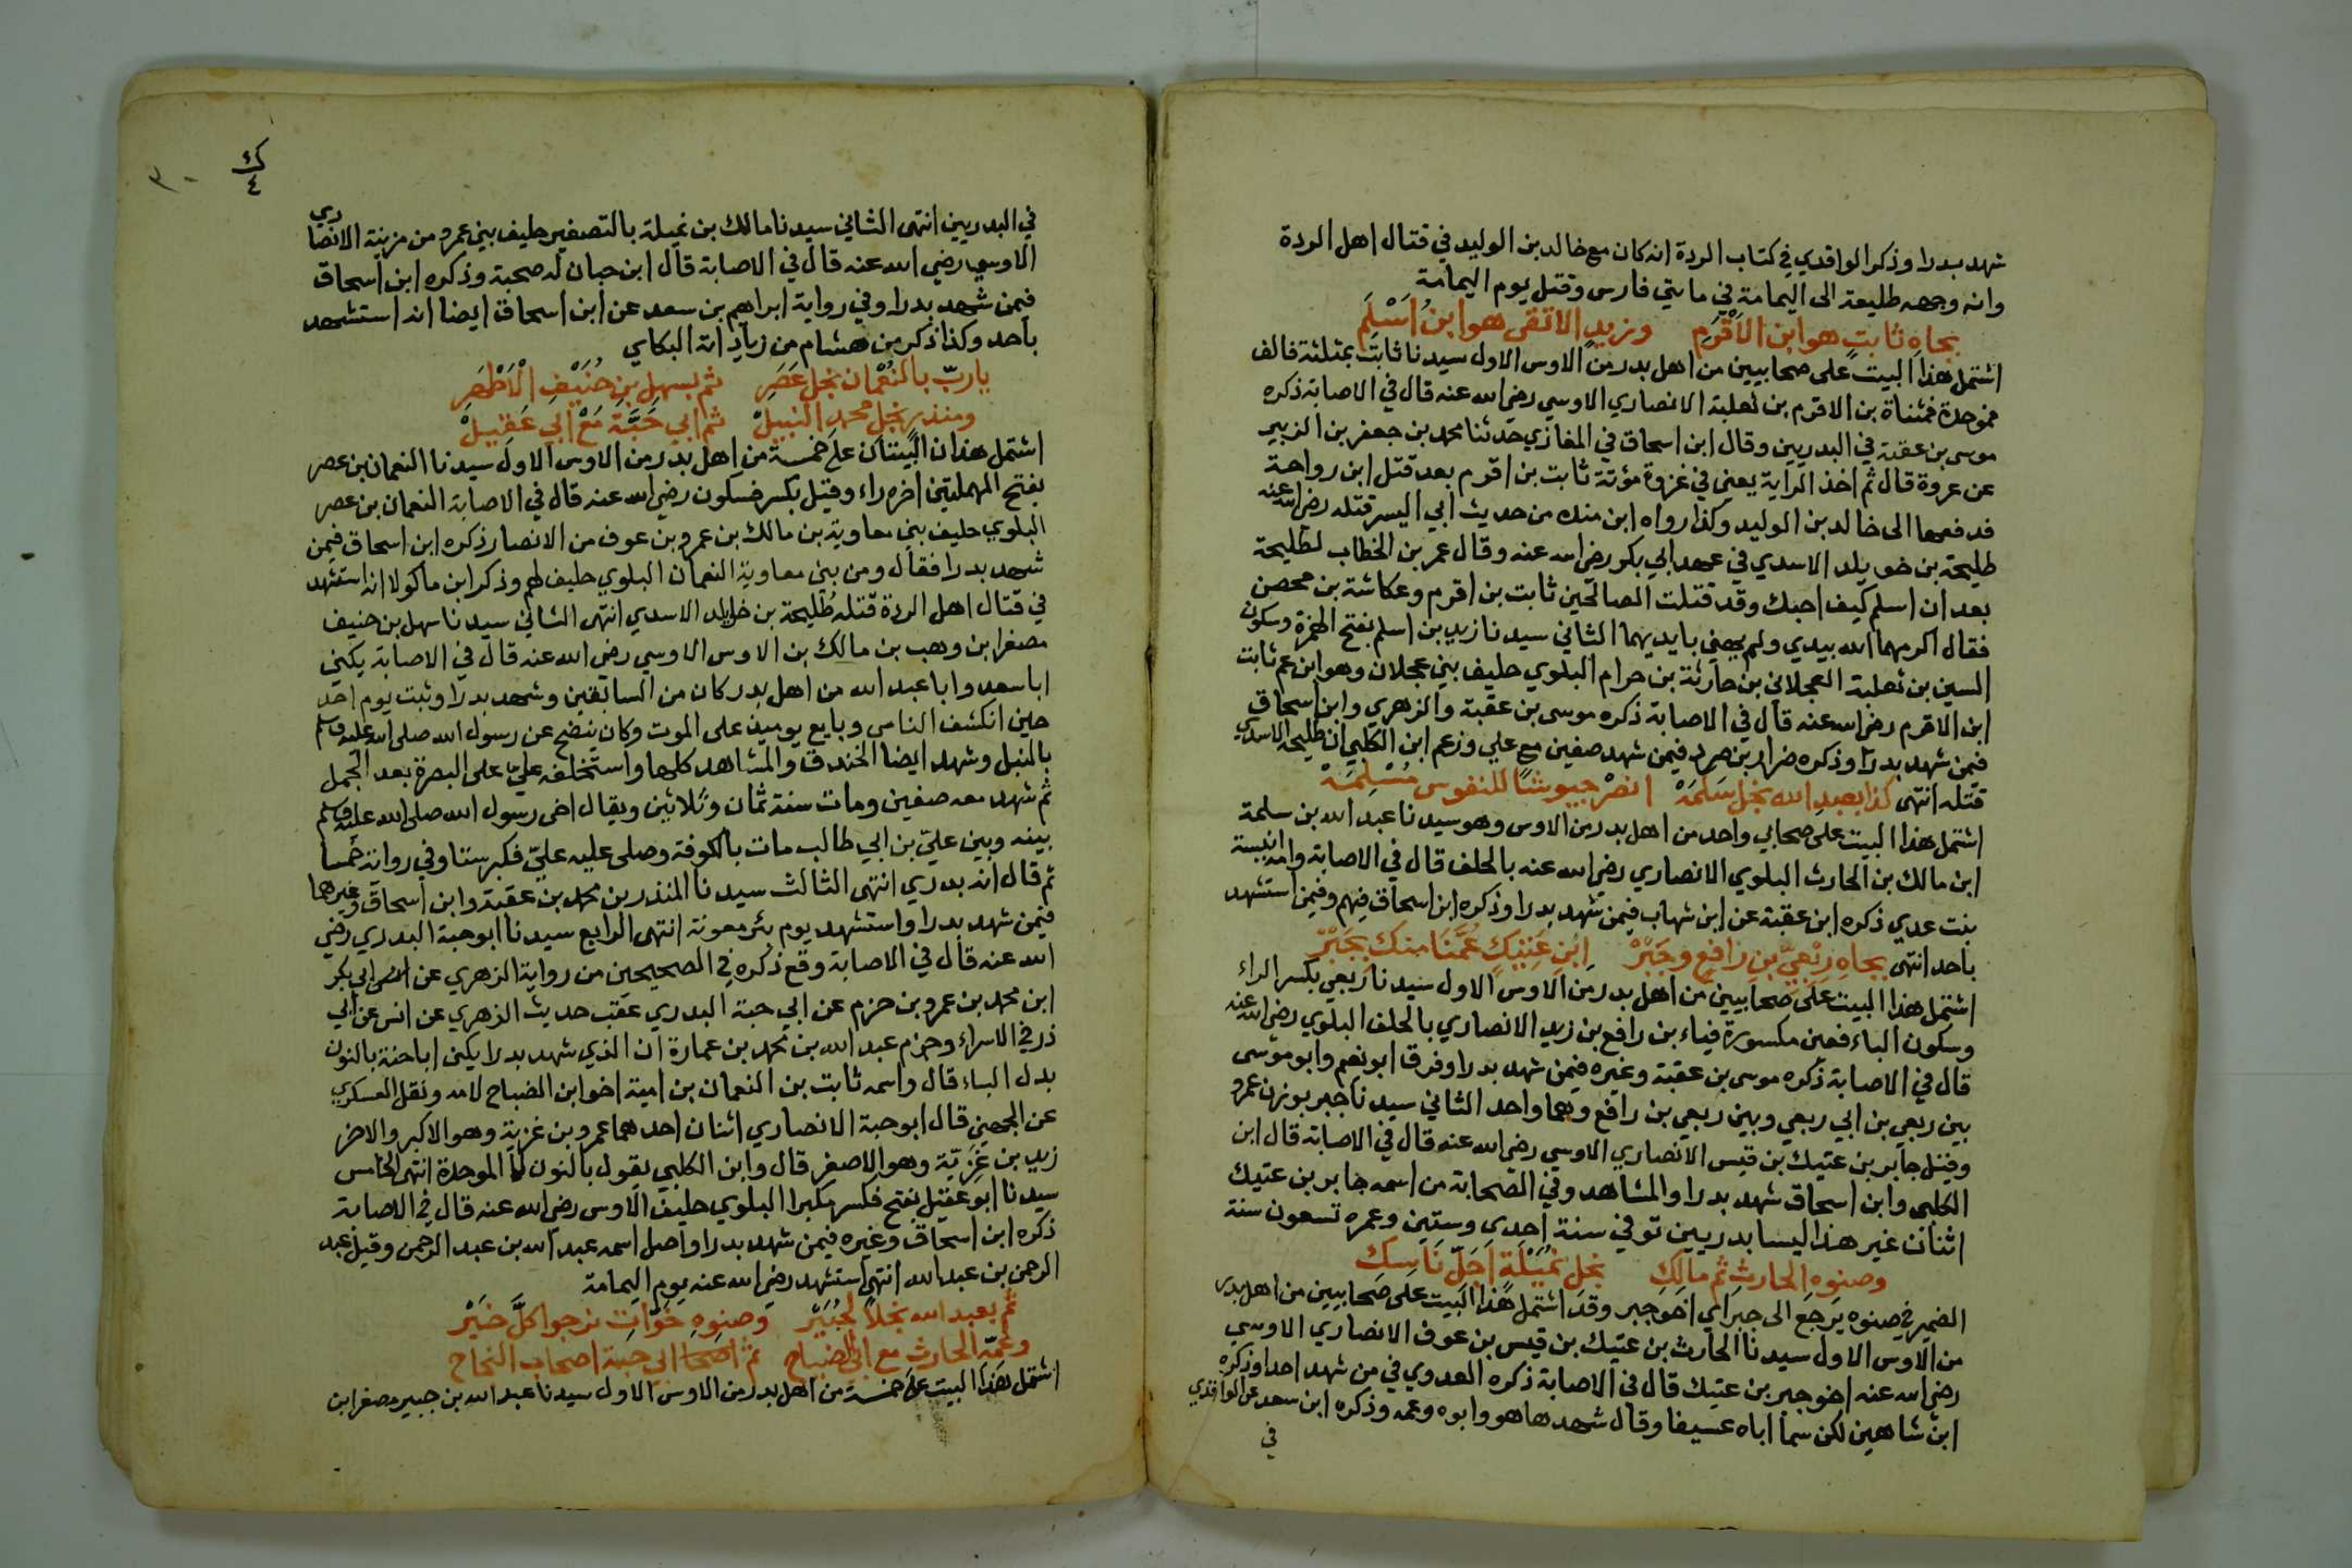 شهد بدرا وذكر الواقدي في كتاب الردة انه كان مع خالد بن الوليد في قتال اهل الردة
وانه وجهه طليعة الى اليمامة في مايتي فارس وقتل يوم اليمامة
بجاهِ ثابتٍ هو ابن الاَقْرَمِ وزيدٍ الاتقى هو ابنُ اَسْلَمِ
اشتمل هذا البيت على صحابيين من اهل بدر من الاوس الاول سيدنا ثابت بمثلثة فالف
فموحدة فمثناة بن الاقرم بن ثعلبة الانصاري الاوسي رضي الله عنه قال في الاصابة ذكره
موسى بن عقبة في البدريين وقال ابن اسحاق في المغازي حدثنا محمد بن جعفر بن الزبير
عن عروة قال ثم اخذ الراية يعني في غزوة مؤتة ثابت بن اقرم بعد قتل ابن رواحة
فدفعها الى خالد بن الوليد وكذا رواه ابن منده من حديث ابي اليسر قتله رضي الله عنه
طليحة بن خويلد الاسدي في عهد ابي بكر رضي الله عنه وقال عمر بن الخطاب لطليحة
بعد ان اسلم كيف احبك وقد قتلت الصالحين ثابت بن اقرم وعكاشة بن محصن
فقال اكرمهما الله بيدي ولم يهني بايديهما الثاني سيدنا زيد بن اسلم بفتح الهمزة وسكون
السين بن ثعلبة العجلاني بن حارثة بن حرام البلوي حليف بني عجلان وهو ابن عم ثابت
ابن الاقرم رضي الله عنه قال في الاصابة ذكره موسى بن عقبة والزهري وابن اسحاق
فيمن شهد بدرا وذكره ضرار بن صرد فيمن شهد صفين مع علي وزعم ابن الكلبي ان طليحة الاسدي
قتله انتهى كذا بعبدِ الله نجل سَلِمَةْ انصرْ جيوشًا للنفوس مُسْلِمَةْ
اشتمل هذا البيت على صحابي واحد من اهل بدر من الاوس وهو سيدنا عبد الله بن سلمة
ابن مالك بن الحارث البلوي الانصاري رضي الله عنه بالحلف قال في الاصابة وامه انيسة
بنت عدي ذكره ابن عقبة عن ابن شهاب فيمن شهد بدرا وذكره ابن اسحاق فيهم وفيمن استشهد
باحد انتهى بجاهِ رِبْعِيِّ بن رافعٍ وجَبْرْ ابنِ عَتِيْكٍ عُمَّنَا منك بجَبْرْ
اشتمل هذا البيت على صحابيين من اهل بدر من الاوس الاول سيدنا ربعي بكسر الراء
وسكون الباء فعين مكسورة فياء بن رافع بن زيد الانصاري بالحلف البلوي رضي الله عنه
قال في الاصابة ذكره موسى بن عقبة وغيره فيمن شهد بدرا وفرق ابو نعيم وابو موسى
بين ربعي بن ابي ربعي وبين ربعي بن رافع وهما واحد الثاني سيدنا جبر بوزن عمرو
وقيل جابر بن عتيك بن قيس الانصاري الاوسي رضي الله عنه قال في الاصابة قال ابن
الكلبي وابن اسحاق شهد بدرا والمشاهد وفي الصحابة من اسمه جابر بن عتيك
اثنان غير هذا ليسا بدريين توفي سنة احدى وستين وعمره تسعون سنة
وصنوِه الحارثِ ثم مالِكِ نجل نُمَيْلَةٍ اجلّ ناسِكِ
الضمير في صنوه يرجع الى جبر اي اخو جبر وقد اشتمل هذا البيت على صحابيين من اهل بدر
من الاوس الاول سيدنا الحارث بن عتيك بن قيس بن عوف الانصاري الاوسي
رضي الله عنه اخو جبر بن عتيك قال في الاصابة ذكره العدوي في من شهد احدا وذكره
ابن شاهين لكن سما اباه عسيفا وقال شهدها هو وابوه وعمه وذكره ابن سعد عن الواقدي
في
٣٠
ك
٤
في البدريين انتهى الثاني سيدنا مالك بن نميلة بالتصغير حليف بني عمرو من مزينة الانصاري
الاوسي رضي الله عنه قال في الاصابة قال ابن حبان له صحبة وذكره ابن اسحاق
فيمن شهد بدرا وفي رواية ابراهيم بن سعد عن ابن اسحاق ايضا انه استشهد
باحد وكذا ذكر من هشام من زيادته البكاي
ياربّ بالنُعْمان نجل عَصَرِ ثم بسهلِ بن حُنَيْفِ الْاَطْهَرِ
ومنذرٍ نجل محمد النبيلْ ثم ابي حَبَّةَ مَعْ ابي عَقِيلْ
اشتمل هذان البيتان على خمسة من اهل بدر من الاوس الاول سيدنا النعمان بن عصر
بفتح المهملتين اخره راء وقيل بكسر فسكون رضي الله عنه قال في الاصابة النعمان بن عصر
البلوي حليف بني معاوية بن مالك بن عمرو بن عوف من الانصار ذكره ابن اسحاق فيمن
شهد بدرا فقال ومن بني معاوية النعمان البلوي حليف لهم وذكر ابن ماكولا انه استشهد
في قتال اهل الردة قتله طُلَيحة بن خالد الاسدي انتهى الثاني سيدنا سهل بن حنيف
مصغرا بن وهب بن مالك بن الاوس الاوسي رضي الله عنه قال في الاصابة يكنى
ابا سعد وابا عبد الله من اهل بدر كان من السابقين وشهد بدرا وثبت يوم احد
حين انكشف الناس وبايع يوميذ على الموت وكان ينضح عن رسول الله صلى الله عليه وسلم
بالنبل وشهد ايضا الخندق والمشاهد كلها واستخلفه علي على البصرة بعد الجمل
ثم شهد معه صفين ومات سنة ثمان وثلاثين ويقال اخى رسول الله صلى الله عليه وسلم
بينه وبين عليّ بن ابي طالب مات بالكوفة وصلى عليه عليّ فكبر ستا وفي رواية خمسا
ثم قال انه بدري انتهى الثالث سيدنا المنذر بن محمد بن عقبة وابن اسحاق وغيرهما
فيمن شهد بدرا واستشهد يوم بئر معونة انتهى الرابع سيدنا ابو حبة البدري رضي
الله عنه قال في الاصابة وقع ذكره في الصحيحين من رواية الزهري عن انس ابي بكر
ابن محمد بن عمرو بن حزم عن ابي حبة البدري عقب حديث الزهري عن انس عن ابي
ذر في الاسراء وجزم عبد الله بن محمد بن عمارة ان الذي شهد بدرا يكنى ابا حنة بالنون
بدل الباء قال واسمه ثابت بن النعمان بن امية اخو ابن الضباح لامه ونقل العسكري
عن الجهمي قال ابو حبة الانصاري اثنان احدهما عمرو بن غزية وهو الاكبر والاخر
زيد بن غَزِيّة وهو الاصغر قال وابن الكلبي يقول بالنون الموحدة انتهى الخامس
سيدنا ابو عقيل بفتح فكسر مكبرا البلوي حليف الاوس رضي الله عنه قال في الاصابة
ذكره ابن اسحاق وغيره فيمن شهد بدرا واصل اسمه عبد الله بن عبد الرحمن وقيل عبد
الرحمن بن عبد الله انتهى استشهد رضي الله عنه يوم اليمامة
ثم بعبد الله نجلا لجُبَيْرْ وصنوِهِ خَوَّاتِ نرجوا كلَّ خَيْرْ
وعَمِّه الحارثِ مع ابي الضياح ثم ابي حبة اصحاب النجاح
اشتمل هذا البيت على خمسة من اهل بدر من الاوس الاول سيدنا عبد الله بن جبير مصغرا بن